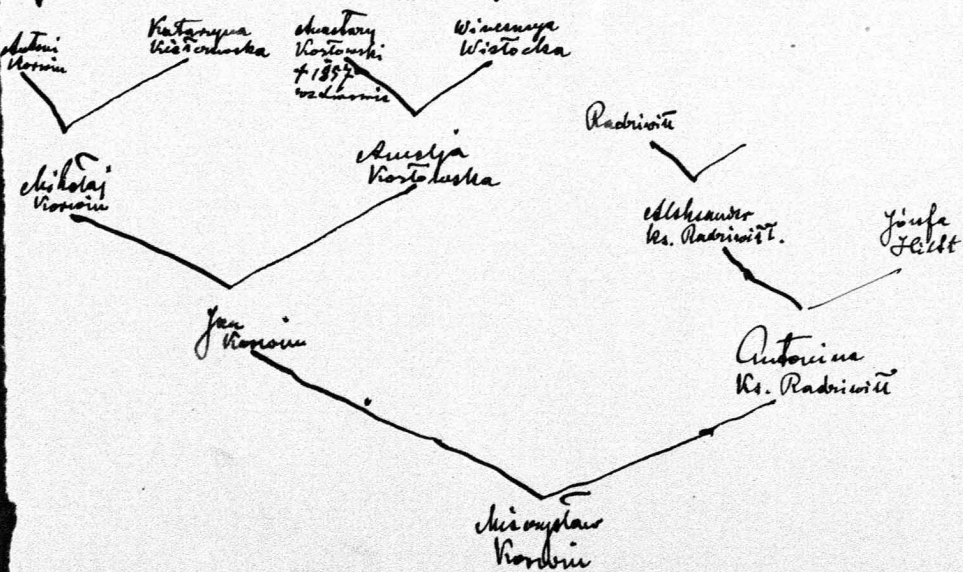 Antoni
Korwin
Katarzyna
Anastazy
Kosłowski
† 1857
Wincencya
Wisłocka
Radziwiłł
Mikołaj
Korwin
Amelja
Kosłowska
Aleksander
ks. Radziwiłł.
Józefa
Jan
Korwin
Antonina
Ks. Radziwiłł
Mieczysław
Korwin